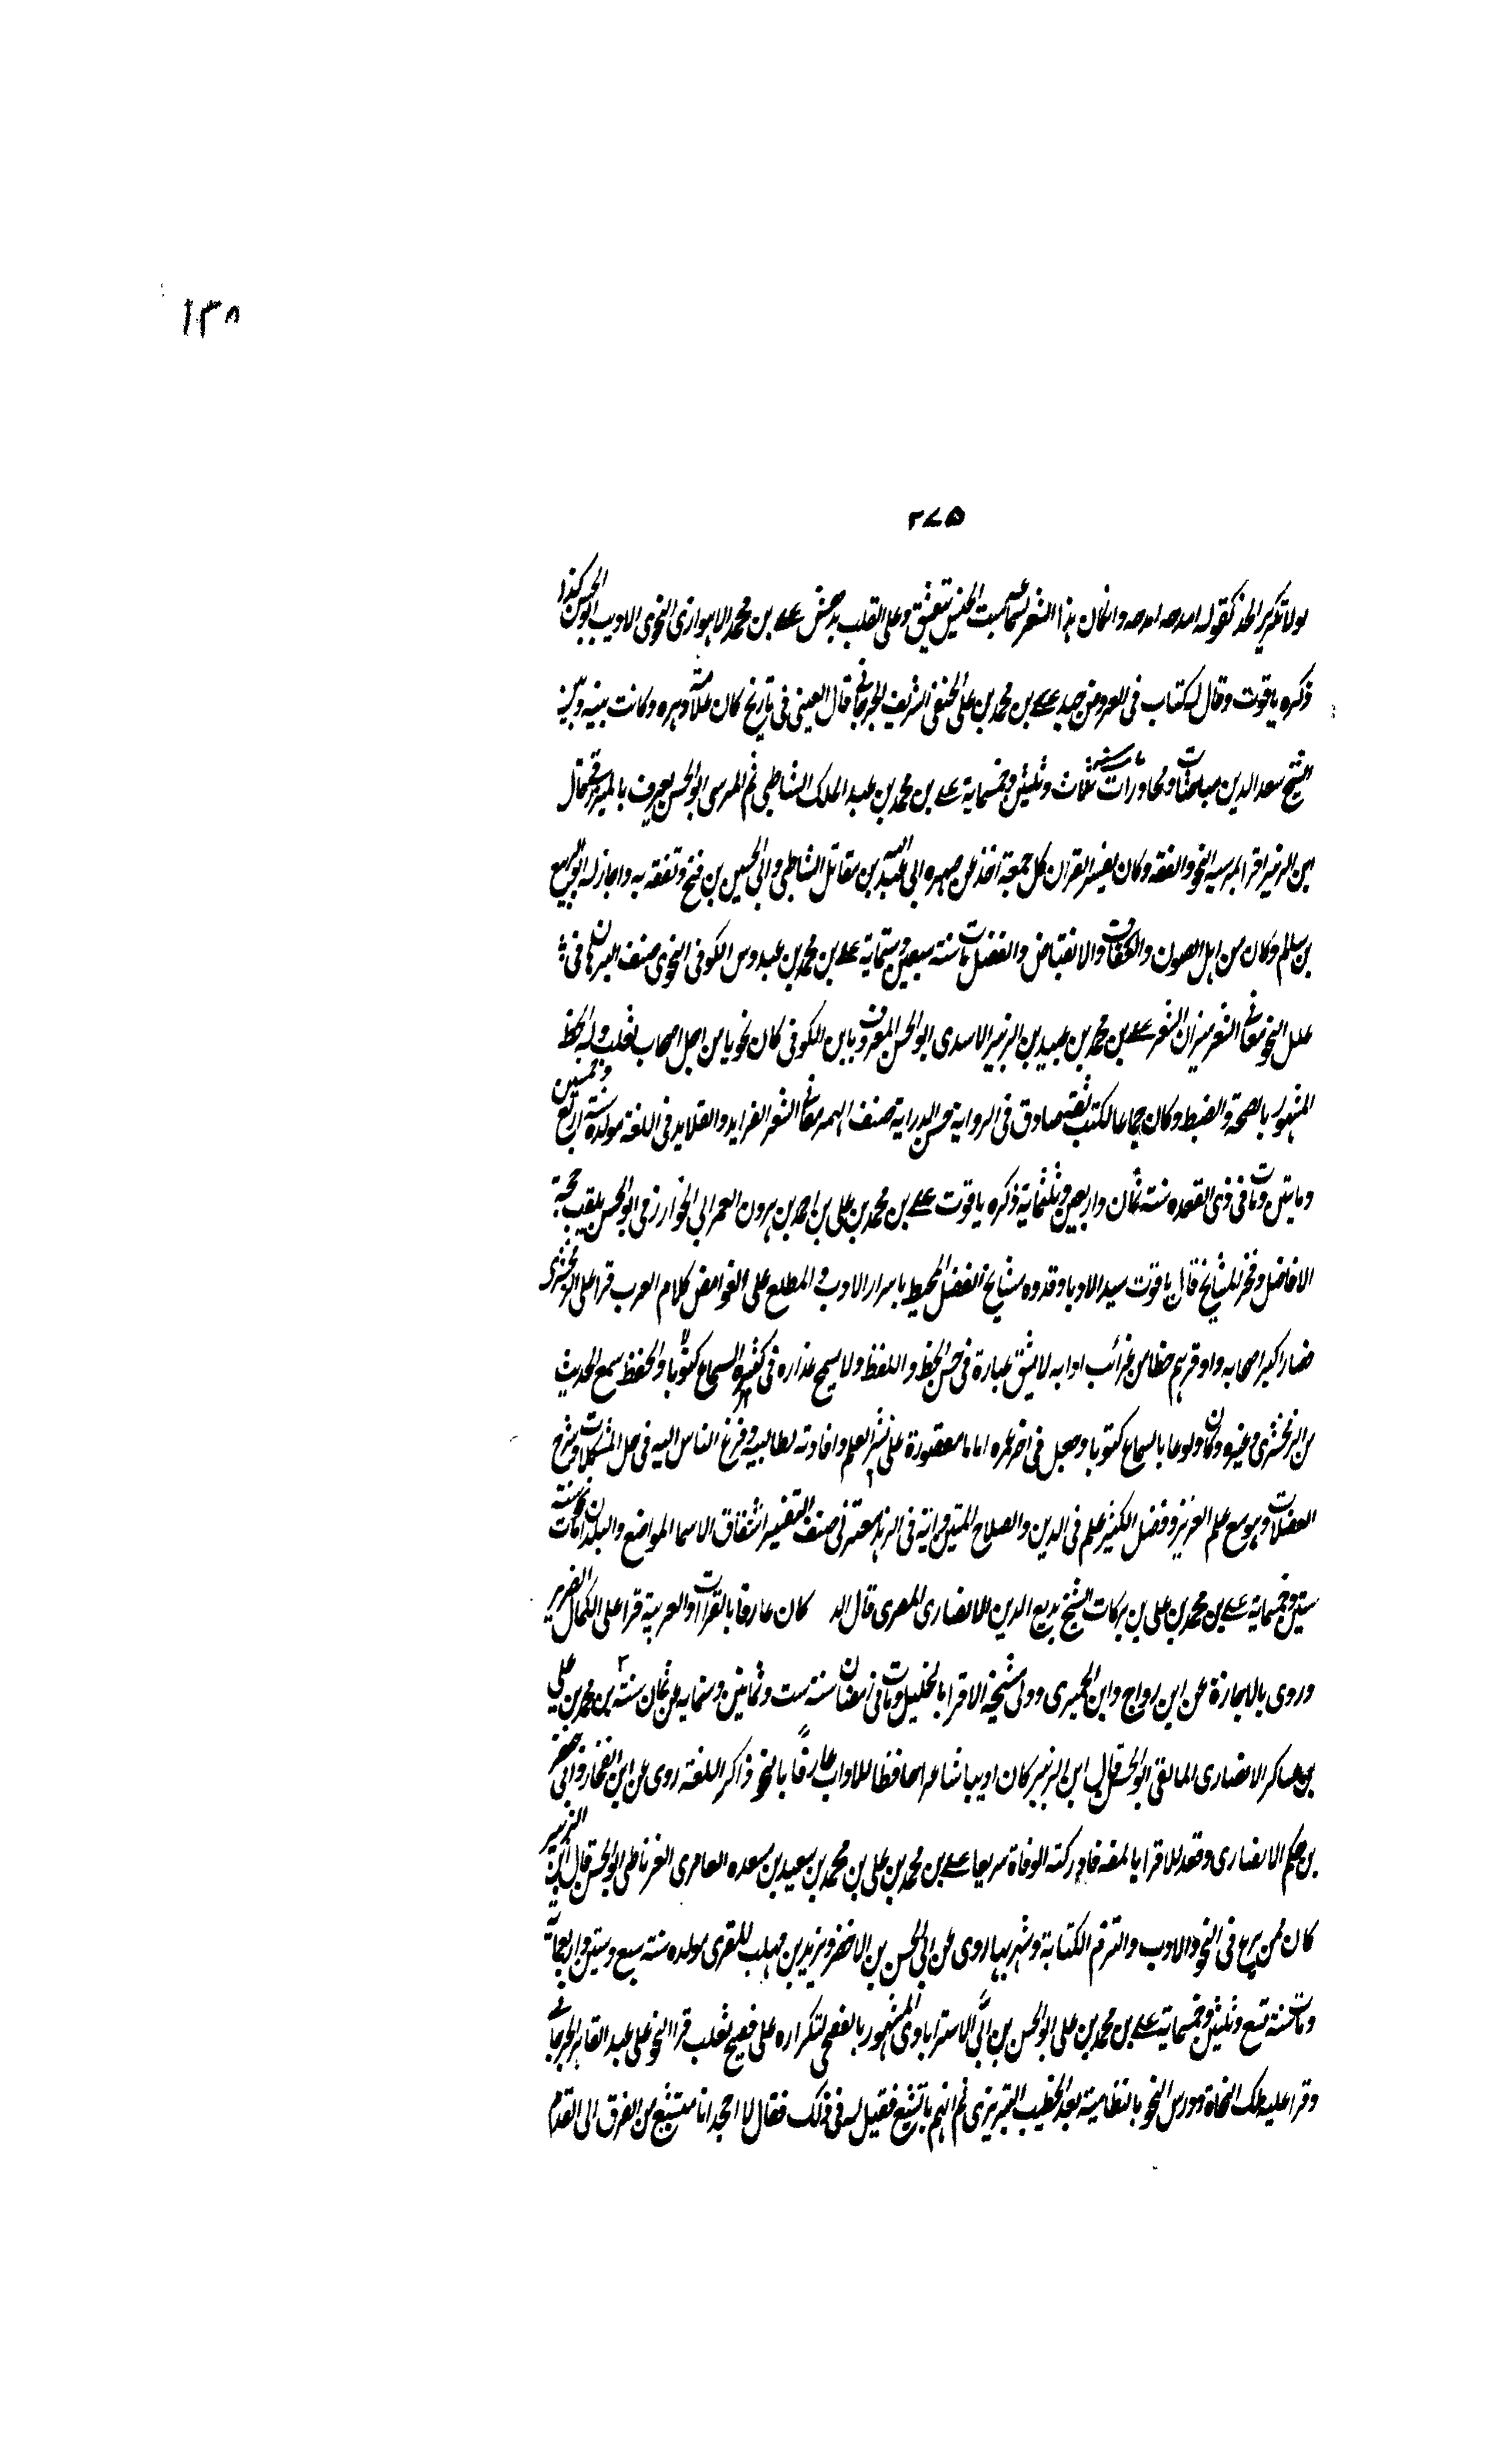 ١٣٨
٢٧٥
لولا تكرير الحذ كقوله امدحه امدحه وانكان هذا الشعر يتعشق وعلى القلب بدحش علے بن محمد الاهوازى النحوى الاديب ابوالحسن كذا
ذكره ياقوت وقال له كتاب فى العروض جيد علے بن محمد بن على الحنفى الشريف الجرجانے قال العينى فى تاريخ كان علامة دهره وكانت بينه وبين
الشيخ سعد الدين مباحثات ومحاورات سنة ثلاث وثلثين وخمسماية علے بن محمد بن عبد الملك الشاطبى ثم المرسى ابوالحسن يعرف بالميرسى قال
ابن الزبير اقرا بمرسيه النحو والفقه وكان يفسر القران كل جمعة اخذ عن صهره ابى عبدالله بن مقاتل الشاطبى وابى الحسين بن فتح وتفقه به واجاز له ابوالربيع
بن سالم وكان من اهل الصون والعفاف والانقباض والفضل مات سنة سبعين وستماية علے بن محمد بن عبدوس الكوفى النحوى صنف البرهان فى
علل النحو معانے الشعر ميزان الشعر علے بن محمد بن عبيد بن الزبير الاسدى ابوالحسن المعروف بابن الكوفى كان نحويا من اجل اصحاب ثعلب وله الخط
المشهور بالصحة والضبط وكان جماعا لكتب ثقة صادق فى الرواية حسن الدراية صنف الهمز معانے الشعر الفرايد والقلايد فى اللغة مولده سنة اربع وخمسين
ومايتين ومات فى ذى القعده سنة ثمان واربعين وثلثماية ذكره ياقوت علے بن محمد بن على بن احمد بن هرون العمرانى الخوارزمى ابوالحسن يلقب حجة
الافاضل وفخر المشايخ قال ياقوت سيد الادبا وقدوه مشايخ الفضل المحيط باسرار الادب و المطلع على الغوامض كلام العرب قرا على الزمخشرى
فصار اكبر اصحابه واوفرهم حظا من غرائب ادابه لا يشق غباره فى حسن الخط و اللفظ ولا يمسح عذاره فى كثيرة السماع كتوبا والحفظ سمع الحديث
من الزمخشرى وغيره وكان ولوعا بالسماع كتوبا وجعل فى اخر عمره اياما مقصورة على نشر العلم وافادته لطالبيه وفزع الناس اليه فى حل المشكلات وشرح
العضلات وهو مع علم الغزير وفضل الكثير علم فى الدين والصلاح المتين واية فى الزهد معتزلى صنف التفسير اشتقاق الاسما المواضع والبلدان مات سنة
ستين وخمسماية علے بن محمد بن على بن بركات الشيخ بديع الدين الانصارى المصرى قال الذ كان عارفا بالقراات والعربية قرا على الكمال الضرير
وروى بالاجازة عن ابن رواج وابن الجميزى وولى مشيخة الاقرا بالخليل ومات فى رمضان سنة ست وثمانين وستمايه عن ثمان سنة بن محمد بن على
بن عساكر الانصارى المالقى ابوالحسن قال ابن الزبير كان اديبا شاعرا حافظا للاداب عارفا بالنحو ذاكر اللغة روى عن ابن الفخار وابى جعفر
بن حكم الانصارى وقعد للاقرا بالمقه فادركته الوفاة سريعا علے بن محمد بن على بن محمد بن سعيد بن مسعده العامرى الغرناطى ابوالحسن قال ابن الزبير
كان ممن برع فى النحو والادب والتزم الكتابة وشهر بها روى عن ابى الحسن بن الاخضر ويزيد بن مهلب المقرى مولده سنة سبع وستين واربعماية
ومات سنة تسع وثلثين وخمسماية علے بن محمد بن على ابوالحسن بن ابى الاستراباوى المشهور بالفصيحى لتكراره على فصيح ثعلب قرا النحو على عبد القاهر الجرجانے
وقرا عليه ملك النحاة ودرس النحو بالنظامية بعد الخطيب التبريزى ثم اتهم بالتشيع فقيل له فى ذلك فقال لا اجحد انا متشيع من الفرق الى القدم